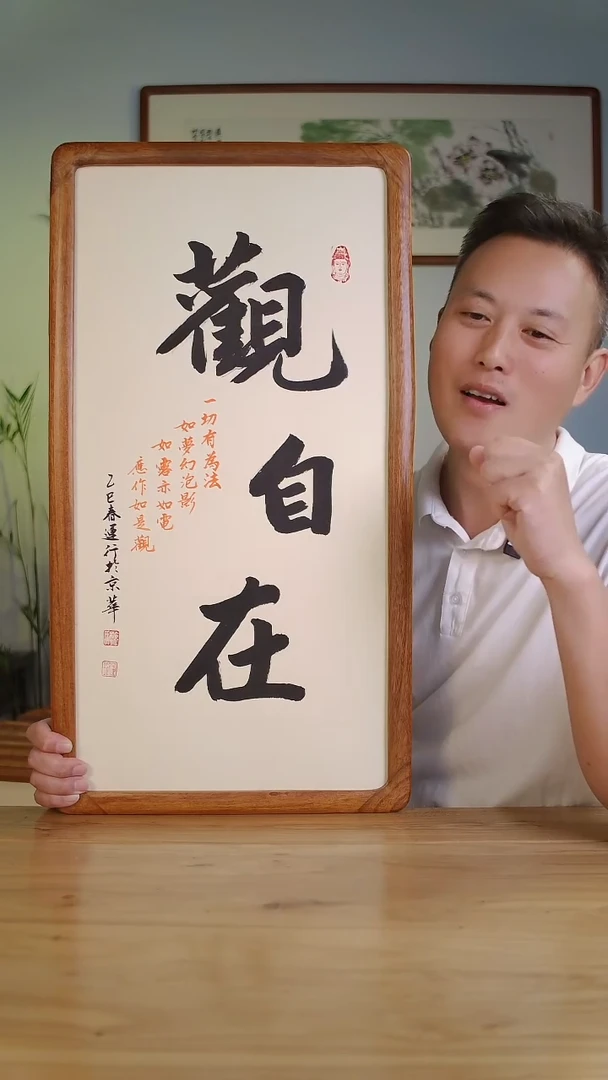 觀自在
一切有為法
如夢幻泡影
如露亦如電
應作如是觀
乙巳春運行於京華